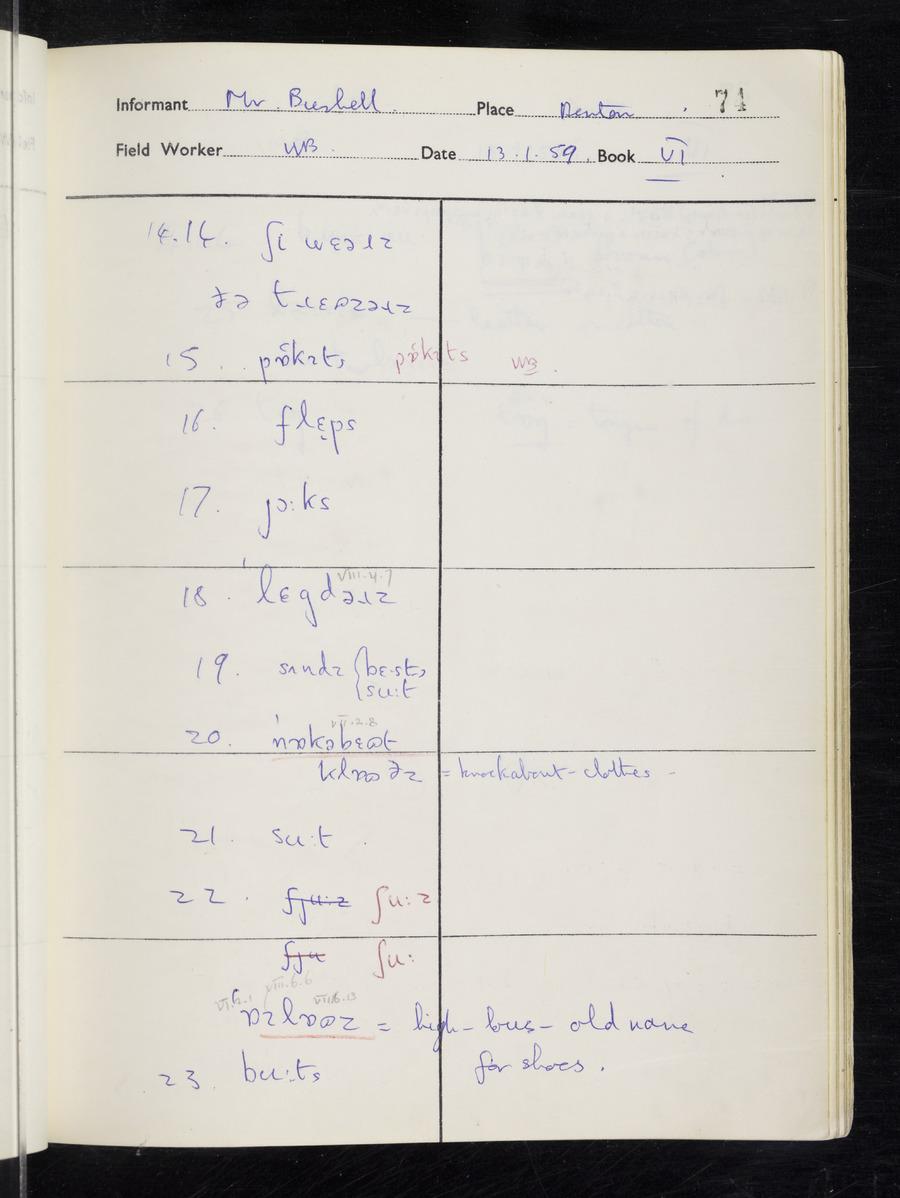 Informant Mr. Bushell. Place Denton. 74
Field Worker WB. Date 13.1.59. Book VI
14.14. ʃi wɛəɹz
ðə tɹɛʊzəɹz
15. pɒ̈kɪts pɒ̈kɪts WB.
16. flɛ̣ps
17. jɔ:ks
VIII.4.7
18. ˈlɛgdəɹz
19. sʌndɪ {bɛ·st,
{su:t
VII.2.8
20. ˈnɒkəbɛʊt
klɒʊðz = knockabout-clothes -
21. su:t.
22. fju:z ʃu:z
fju ʃu:
VIII.6.6
VI.2.1 VII.6.13
= high- - old name
23. bu:ts for shoes.